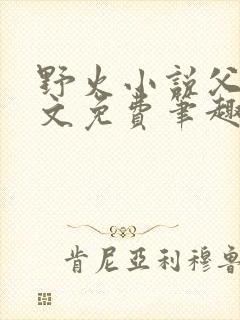 野火小说父
文免费笔趣
肯尼亞利穆魯